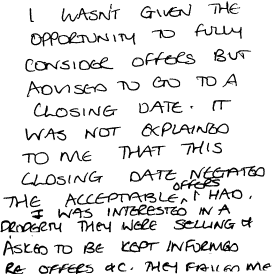 I WASN'T GIVEN THE
OPPORTUNITY TO FULLY
CONSIDER OFFERS BUT
ADVISED TO GO TO A
CLOSING DATE. IT
WAS NOT EXPLAINED
TO ME THAT THIS
CLOSING DATE NEGATED
THE ACCEPTABLE OFFERS I HAD.
I WAS INTERESTED IN A
PROPERTY THEY WERE SELLING &
ASKED TO BE KEPT INFORMED
RE OFFERS &C. THEY FAILED ME